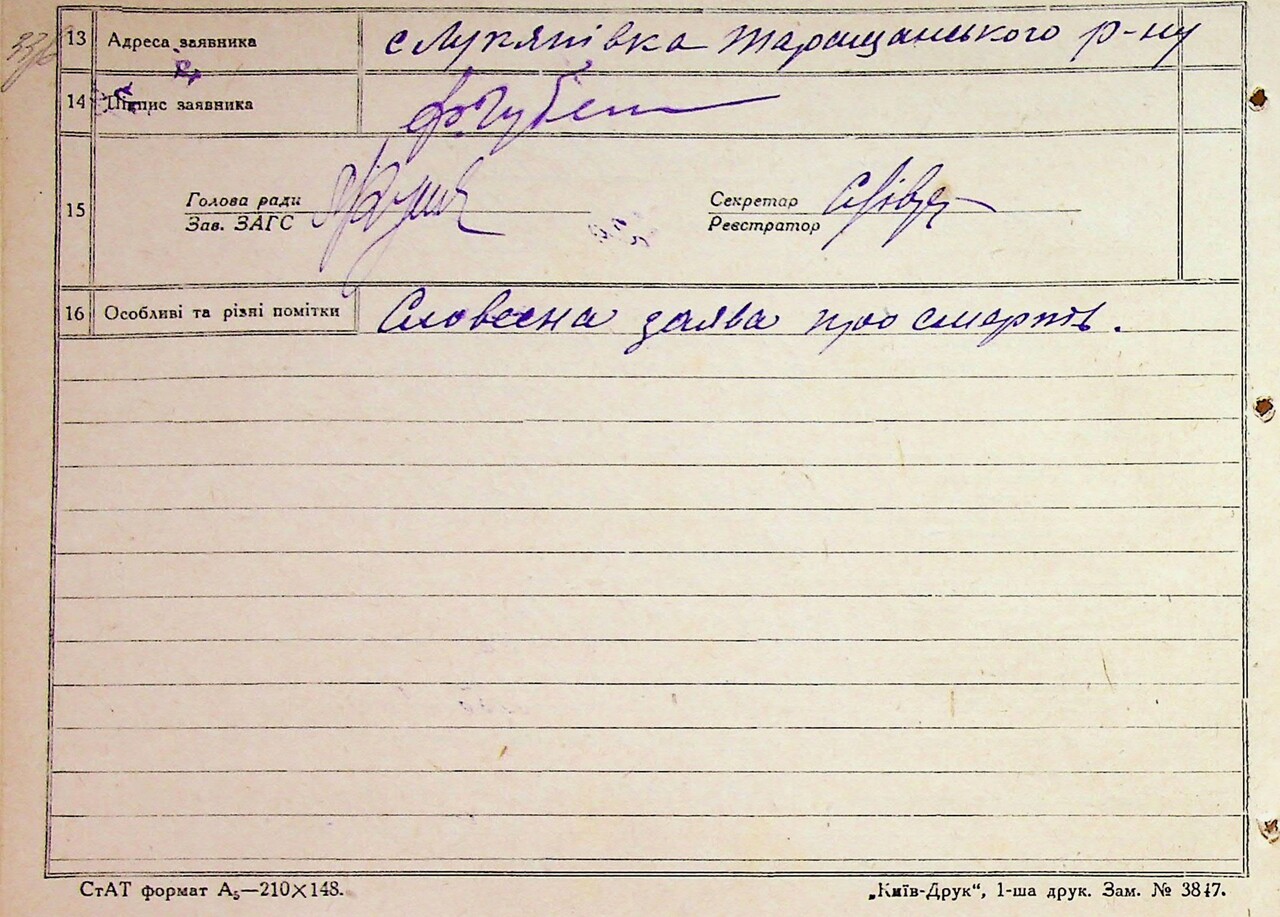 13 Адреса заявника с Лукянівка Таращанського р-ну
14 Підпис заявника
15
Голова ради Секретар
Зав. ЗАГС Реєстратор
16 Особливі та різні помітки Словесна заява про смерть.
СтАТ формат А₅—210×148. „Київ-Друк“, 1-ша друк. Зам. № 3847.